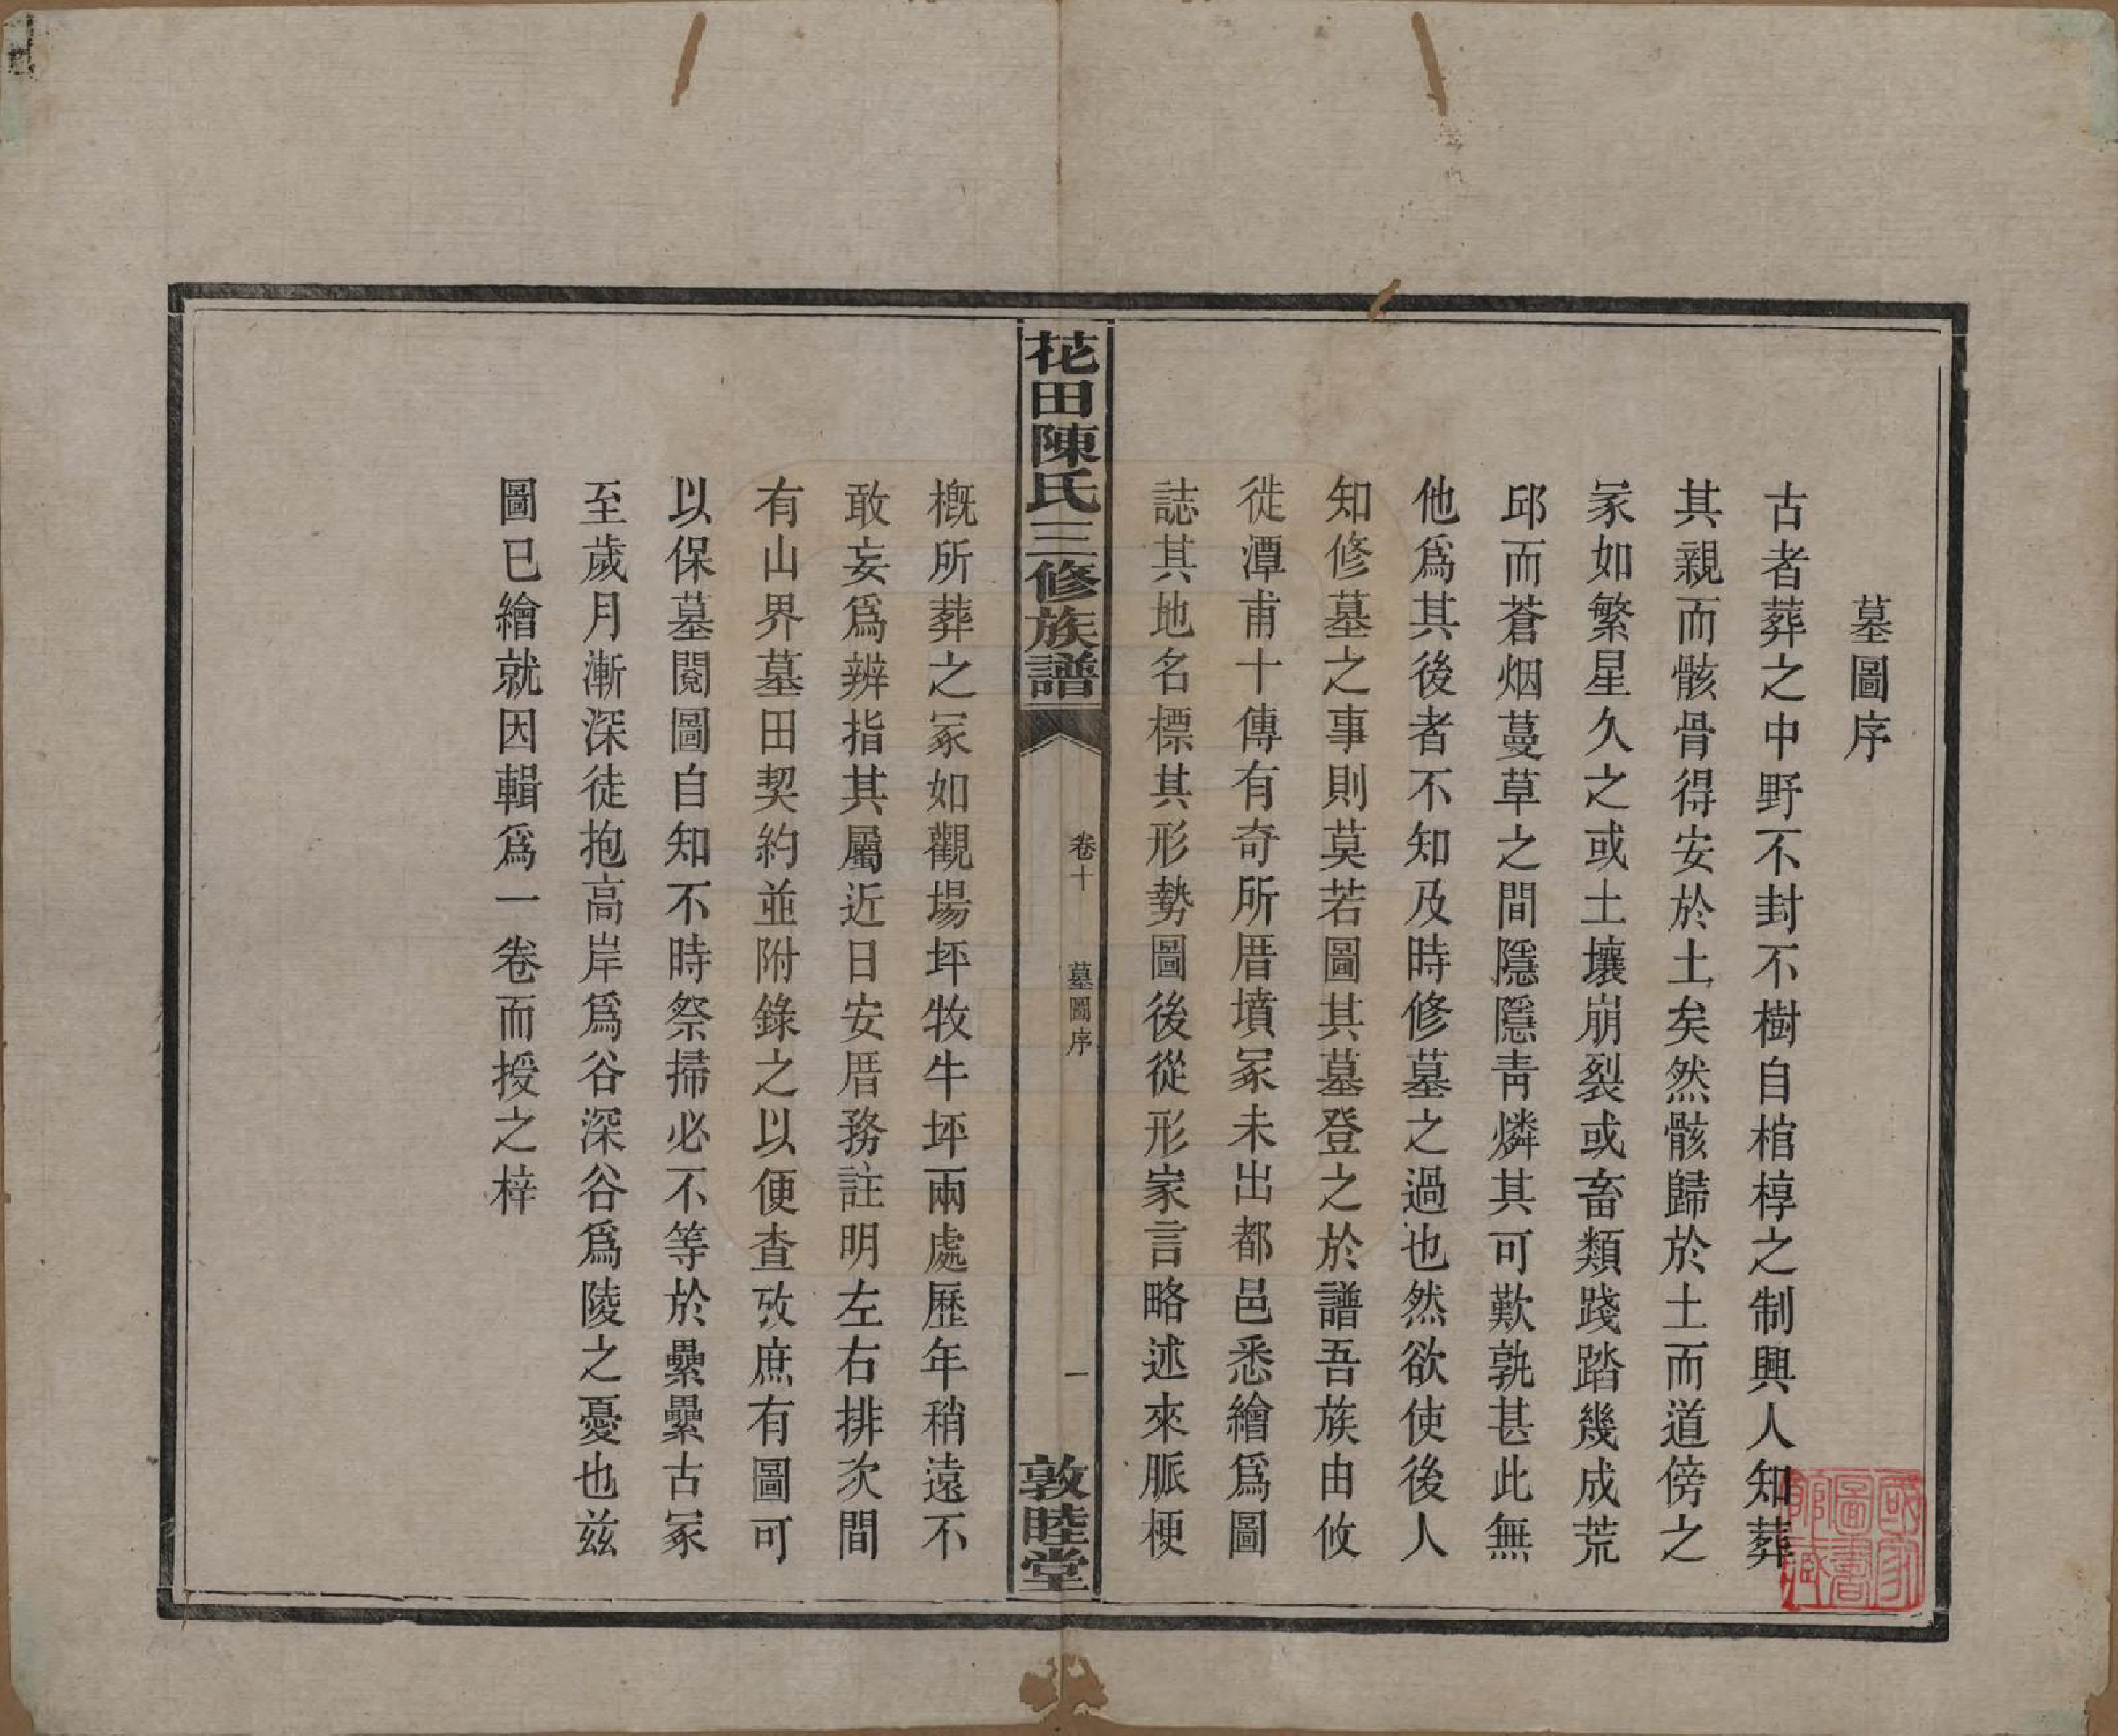 墓圖序
古者葬之中野不封不樹自棺椁之制興人知葬
其親而骸骨得安於土矣然骸歸於土而道傍之
冢如繁星久之或土壤崩裂或畜類踐踏幾成荒
邱而蒼烟蔓草之間隱隱青燐其可歎孰甚此無
他爲其後者不知及時修墓之過也然欲使後人
知修墓之事則莫若圖其墓登之於譜吾族由攸
徙潭甫十傳有奇所厝墳冢未出都邑悉繪爲圖
誌其地名標其形勢圖後從形家言略述來脈梗
花田陳氏三修族譜
卷十
墓圖序
一
敦睦堂
概所葬之冢如觀場坪牧牛坪兩處歷年稍遠不
敢妄爲辨指其屬近日安厝務註明左右排次間
有山界墓田契約並附錄之以便查攷庶有圖可
以保墓閱圖自知不時祭掃必不等於纍纍古冢
至歲月漸深徒抱高岸爲谷深谷爲陵之憂也兹
圖已繪就因輯爲一卷而授之梓
國家
圖書
館藏